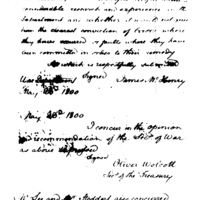 considerable research and experience in the
Department and whether it would not pro-
the cleanest conviction of Errors where
they have occurred or faults where they have
been committed in order to their remedy
Which is respectfully submitted
Signed
War Department James McHenry
May 28th 1800
May 28th 1800
I concur in the opinion
recommendation of the Secy of War
as above
Signed
Oliver Wolcott
Secy of the Treasury
Mr Lee and Mr Stoddert also concurred